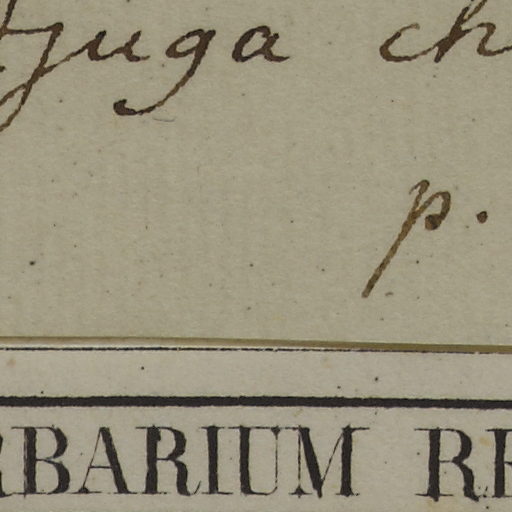 Ajuga ch
p.
RBARIUM RE